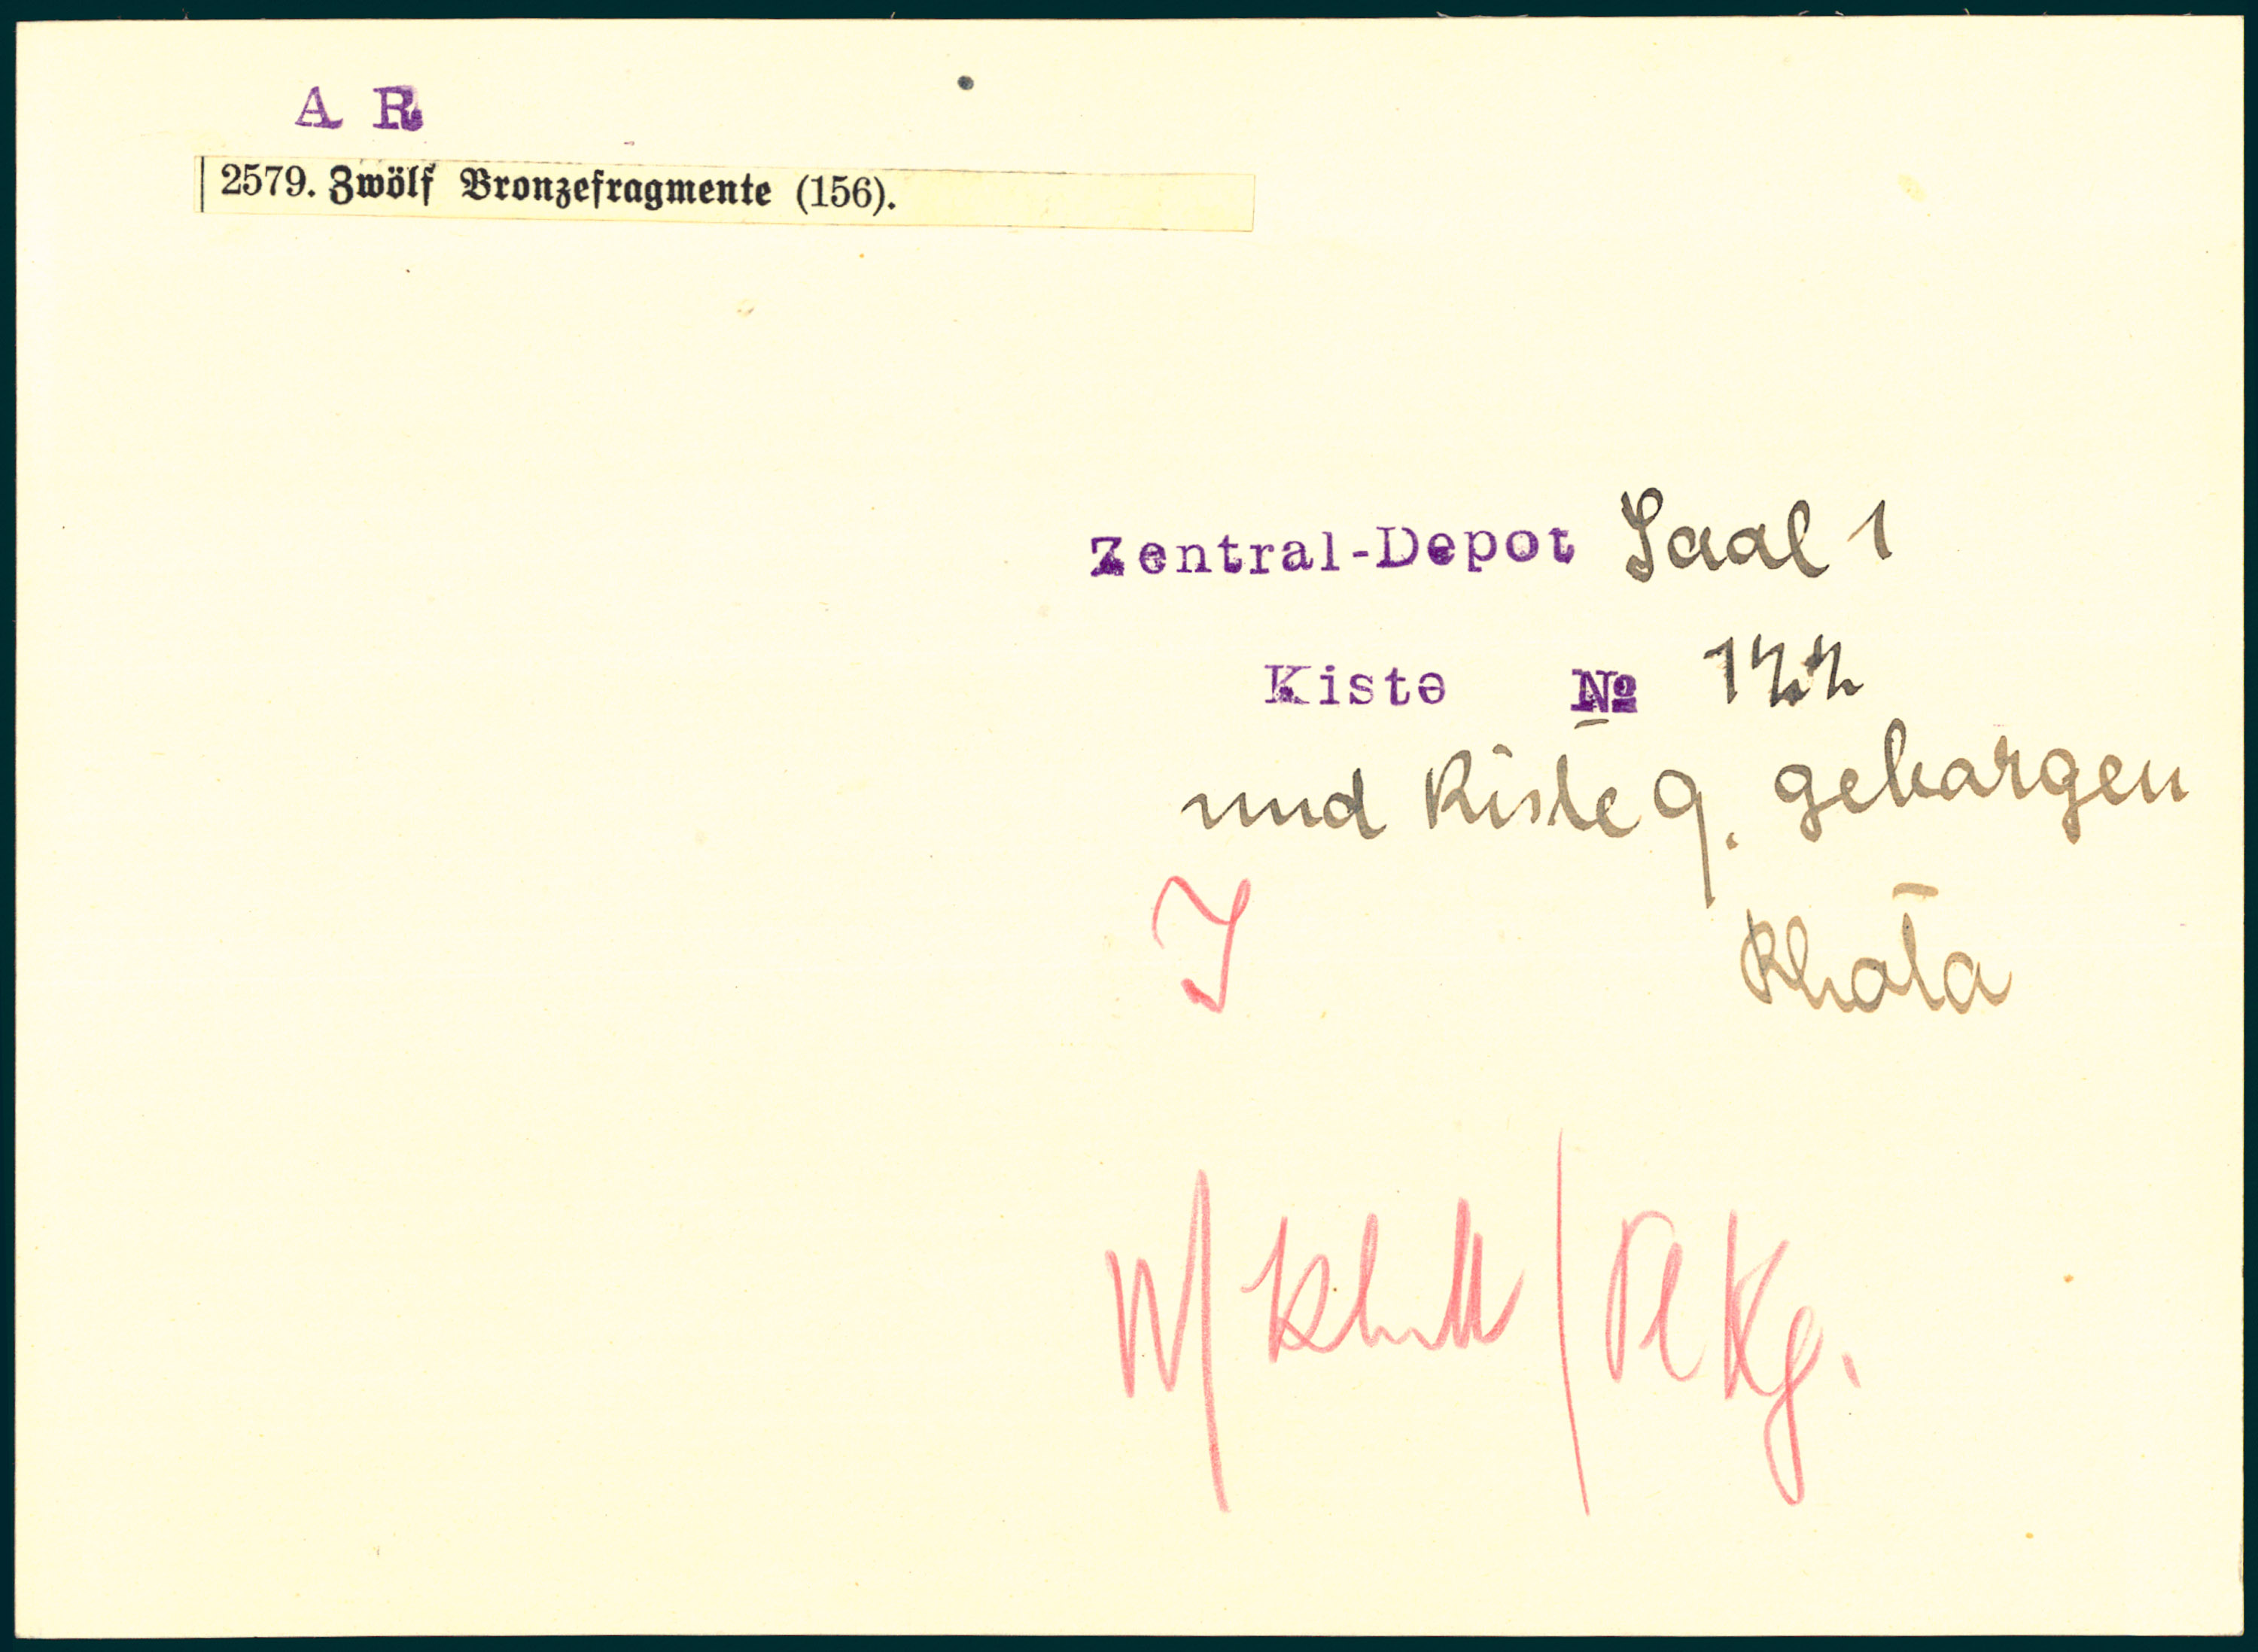 A R
2579. Zwölf Bronzefragmente (156).
Zentral-Depot Saal 1
Kiste № 122
und Kiste 9. geborgen
J
Khota